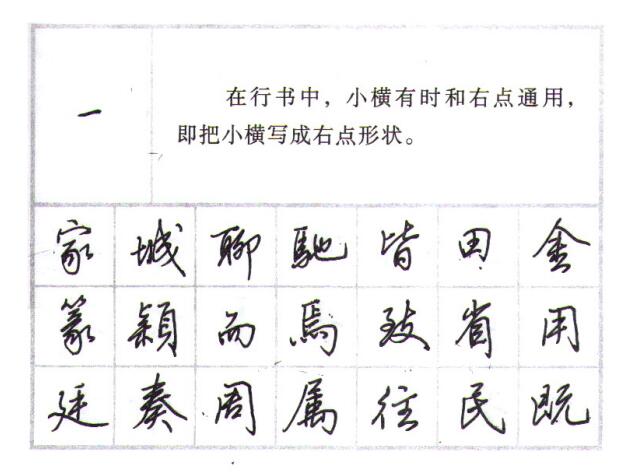 一
在行书中，小横有时和右点通用，
即把小横写成右点形状。
家 城 聊 驰 皆 田 金
篆 颖 而 焉 致 省 用
廷 奏 周 属 往 民 既